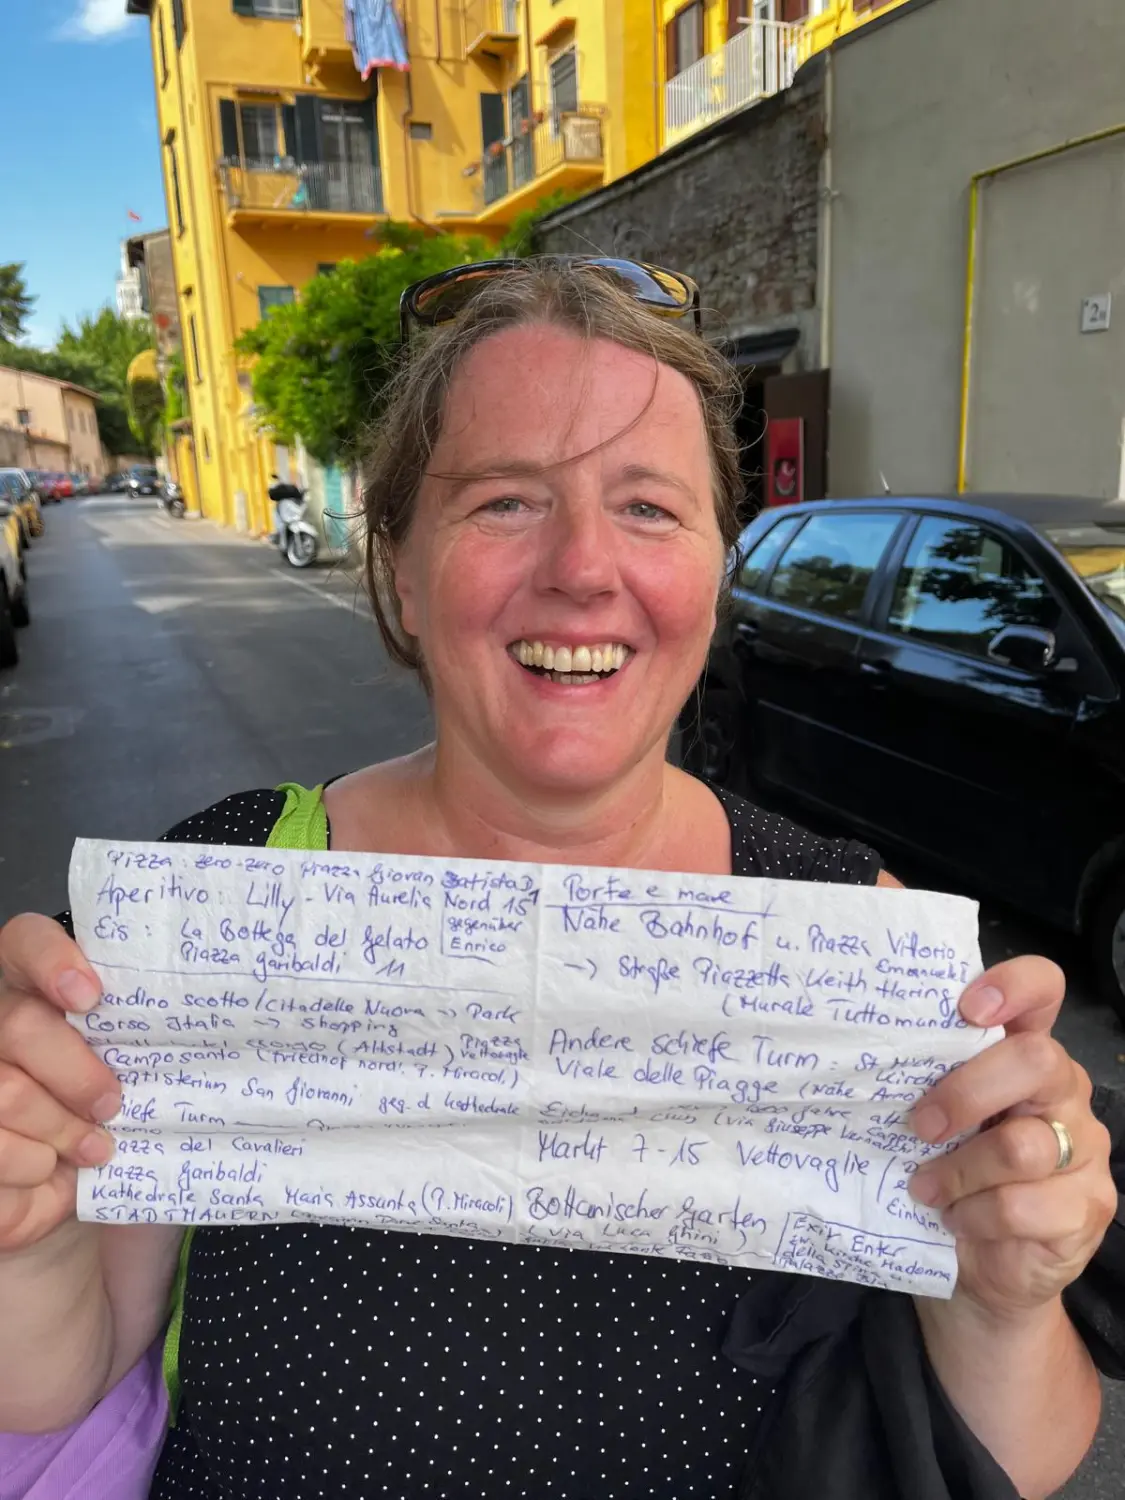 Pizza: zero-zero Piazza Giovan Batista D
Aperitivo: Lilly - Via Aurelia Nord 15
gegenüber
Enrico
Eis: La Bottega del Gelato
Piazza Garibaldi 11
ardino Scotto/Citadelle Nuova -> Park
Corso Italia -> Shopping
(Altstadt) Piazza Vettovaglie
Camposanto (Friedhof nördl. P. Miracol.)
ptisterium San Giovanni geg. d Kathedrale
hiefe Turm
iazza del Cavalieri
Piazza Garibaldi
Kathedrale Santa Maria Assunta (P. Miracoli)
STADTMAUERN
Porte e mare
Nähe Bahnhof u. Piazza Vittorio
Emanuele
-> Straße Piazzetta Keith Haring
(Murale Tuttomondo)
Andere schiefe Turm: St
Kirche
Viale delle Piagge (Nähe Arno)
1000 Jahre alt
(via Giuseppe
Markt 7-15 Vettovaglie /
Einheim.
Bottanischer Garten
(Via Luca Ghini)
Exit Enter
zw. Kirche Madonna
della Spina u.
Palazzo
2